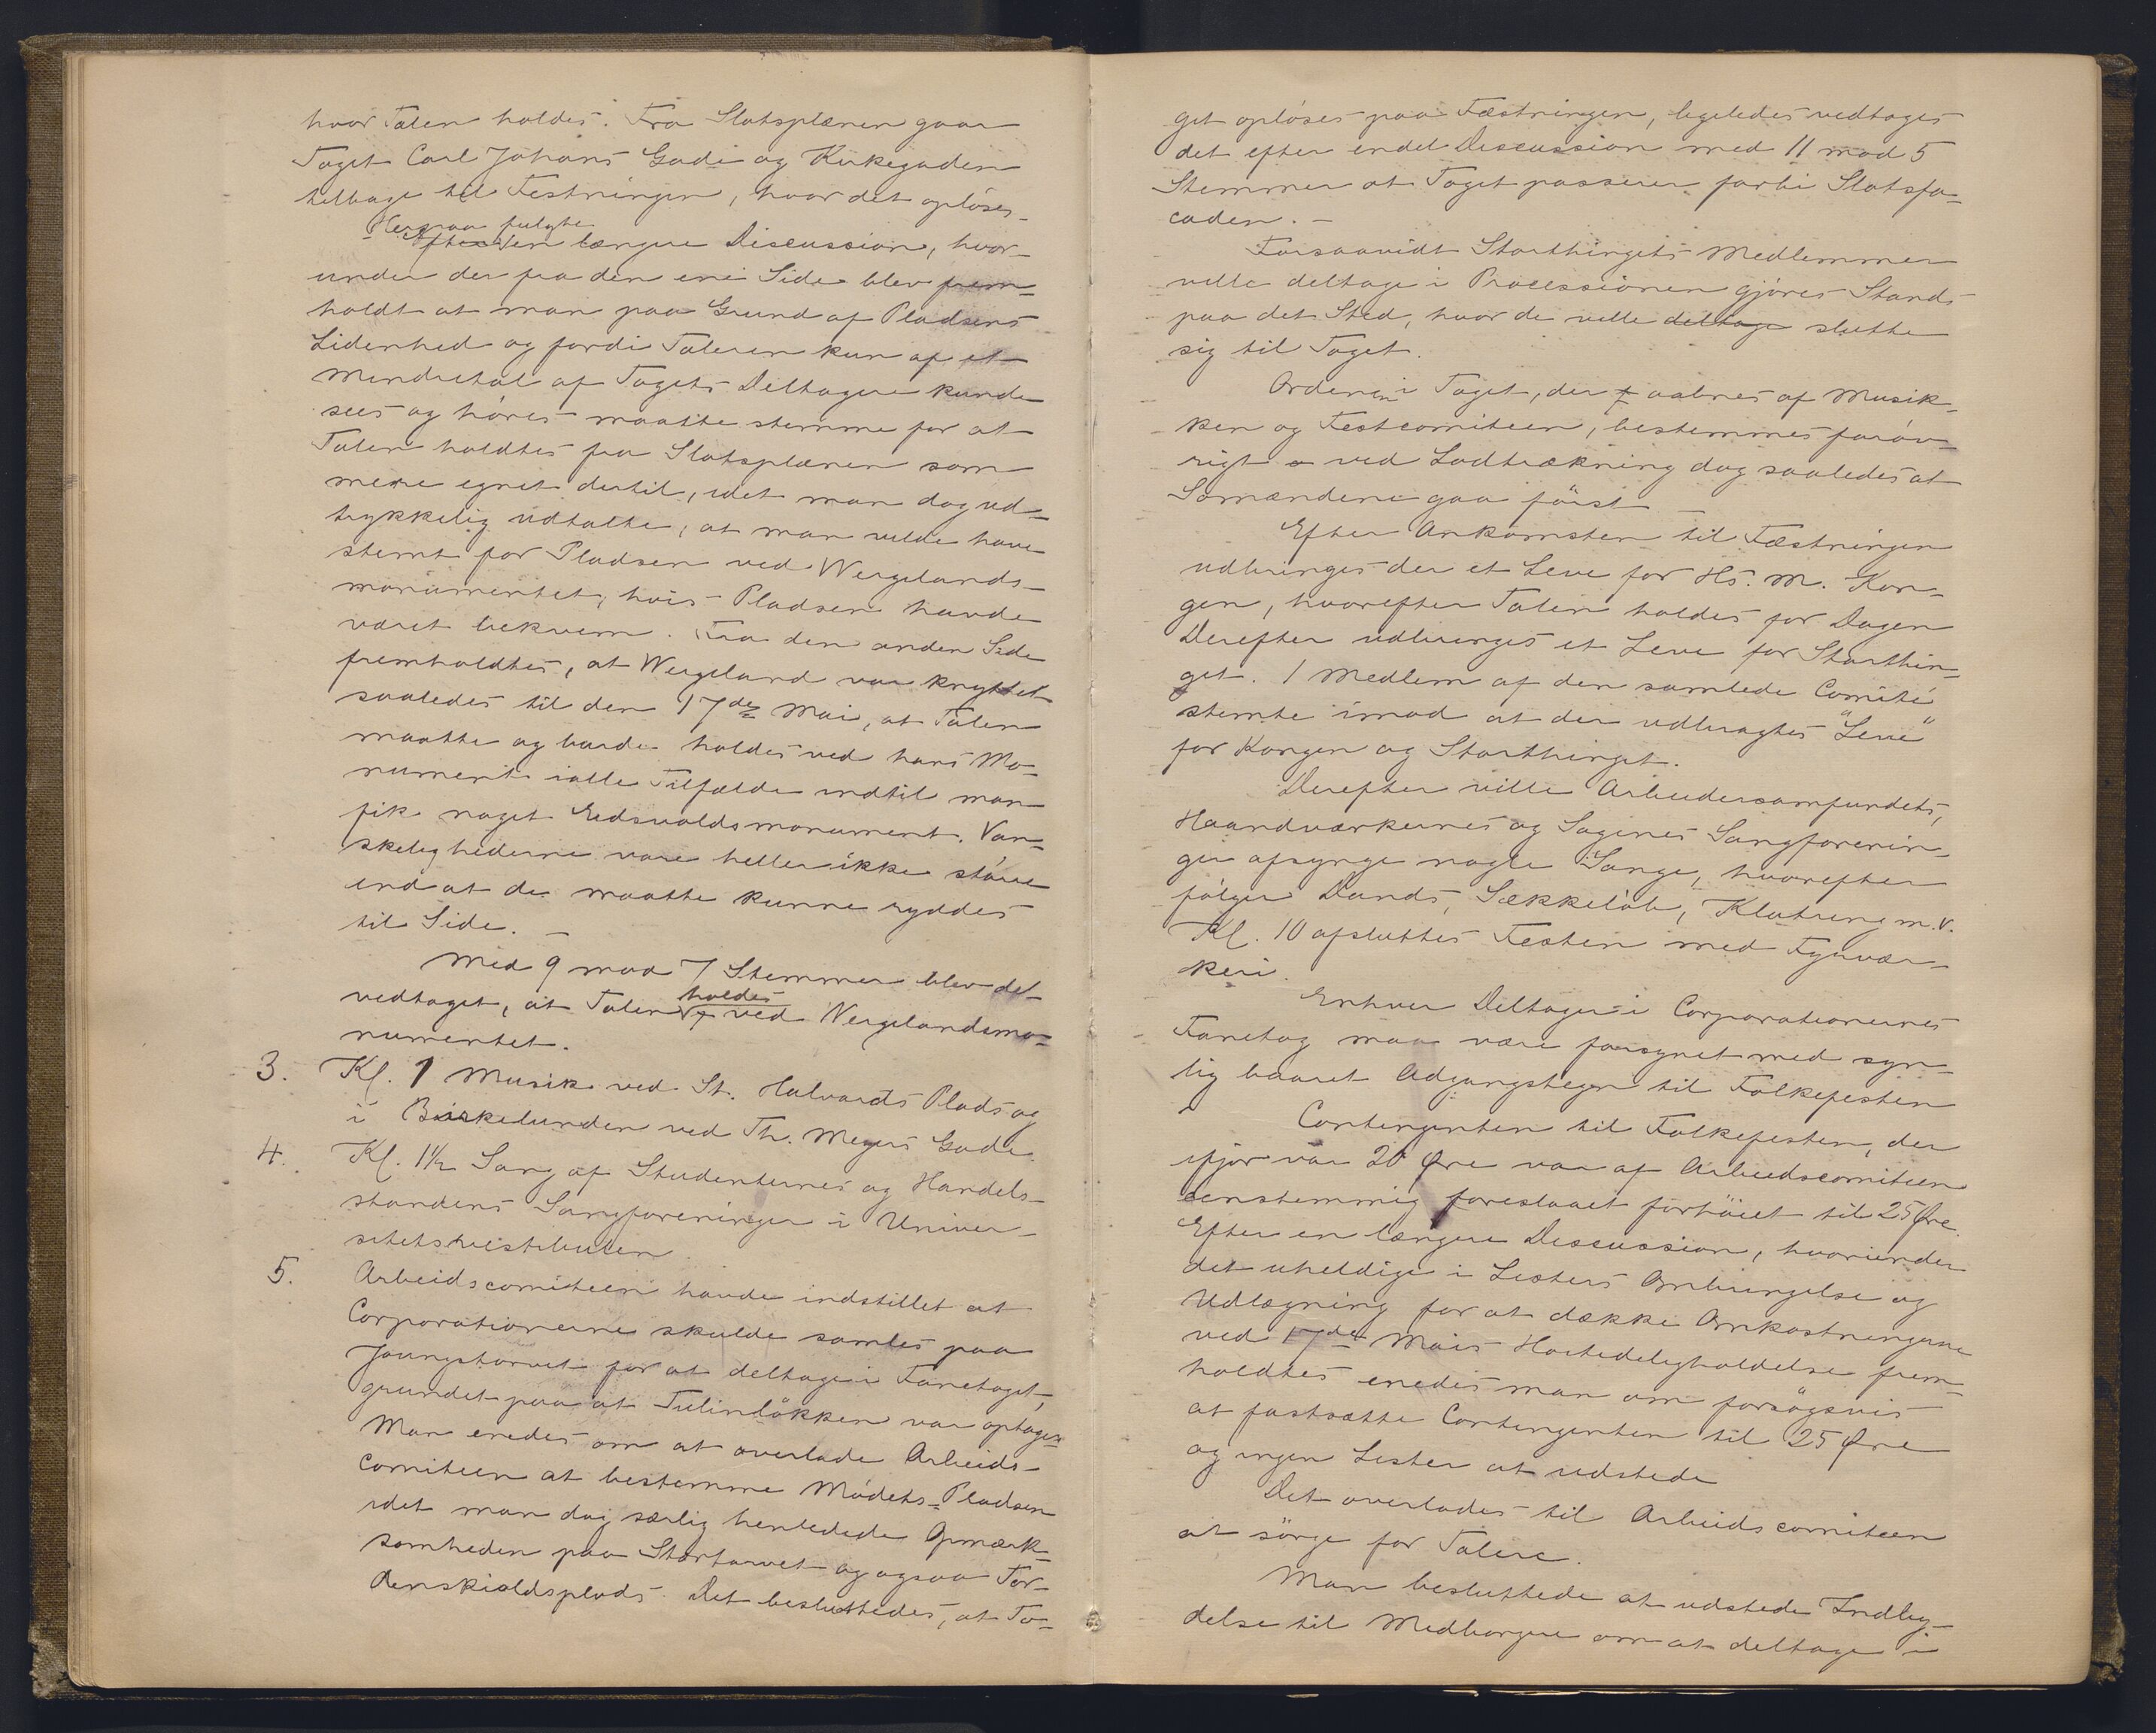 hvor Talen holdes. Fra Slotsplænen gaar
Toget Carl Johans Gade og Kirkegaden
tilbage til Festningen, hvor det opløses.
Herpaa fulgte
Efter en længere Discussion, hvor-
under der fra den ene Side blev frem-
holdt at man paa Grund af Pladsens
Lidenhed og fordi Taleren kun af et
Mindretal af Togets Deltagere kunde
sees og høres maatte stemme for at
Talen holdtes fra Slotsplænen som
mere egnet dertil, idet man dog ud-
trykkelig udtalte, at man vilde have
stemt for Pladsen ved Wergelands-
monumentet, hvis Pladsen havde
været bekvem. Fra den anden Side
fremholdtes, at Wergeland var knyttet
saaledes til den 17de Mai, at Talen
maatte og burde holdes ved hans Mo-
nument ialle Tilfælde indtil man
fik noget Eidsvoldsmonument. Van-
skelighederne vare heller ikke større
end at de maatte kunne ryddes
til Side. –
Med 9 mod 7 Stemmer blev det
vedtaget, at Talen holdes ved Wergelandsmo-
numentet.
3. Kl. 1 Musik ved St. Halvards Plads og
i Birkelunden ved Th. Meyers Gade.
4. Kl. 1½ Sang af Studenternes og Handels-
standens Sangforeninger i Univer-
sitetsvestibulen.
5. Arbeidscomiteen havde indstillet at
Corporationerne skulde samles paa
Youngstorvet for at deltage i Fanetoget,
grundet paa at Tulinløkken var optaget.
Man enedes om at overlade Arbeids-
comiteen at bestemme Mødets-Pladsen
idet man dog særlig henledede Opmærk-
somheden paa Stortorvet og ogsaa Tor-
denskioldsplads. Det besluttedes, at To-
get opløses paa Fæstningen, ligeledes vedtages
det efter endel Discussion med 11 mod 5
Stemmer at Toget passerer forbi Slotsfa-
caden. –
Forsaavidt Storthingets Medlemmer
ville deltage i Processionen gjøres Stands
paa det Sted, hvor de ville deltage slutte
sig til Toget.
Ordenen i Toget, der aabnes af Musik-
ken og Festcomiteen, bestemmes forøv-
rigt ved Lodtrækning dog saaledes at
Sømændene gaa først –
Efter Ankomsten til Fæstningen
udbringes der et Leve for Hs. M. Kon-
gen, hvorefter Talen holdes for Dagen
Derefter udbringes et Leve for Storthin-
get. 1 Medlem af den samlede Comité
stemte imod at der udbragtes "Leve"
for Kongen og Storthinget.
Derefter ville Arbeidersamfundets,
Haandværkernes og Sagenes Sangforenin-
ger afsynge nogle Sange, hvorefter
følger Dands, Sækkeløb, Klatring m.v.
Kl. 10 afsluttes Festen med Fyrvær-
keri.
Enhver Deltager i Corporationernes
Fanetog maa være forsynet med syn-
lig baaret Adgangstegn til Folkefesten
Contingenten til Folkefesten, der
ifjor var 20 Øre var af Arbeidscomiteen
eenstemmig foreslaaet forhöiet til 25 Øre.
Efter en længere Discussion, hvorunder
det uheldige i Listers Ombringelse og
Udlægning for at dække Omkostningerne
ved 17de Mais Høitideligholdelse frem-
holdtes enedes man om forsøgsvis
at fastsætte Contingenten til 25 Øre
og ingen Lister at udstede
Det overlades til Arbeidscomiteen
at sörge for Talere.
Man besluttede at udstede Indby-
delse til Medborgere om at deltage i